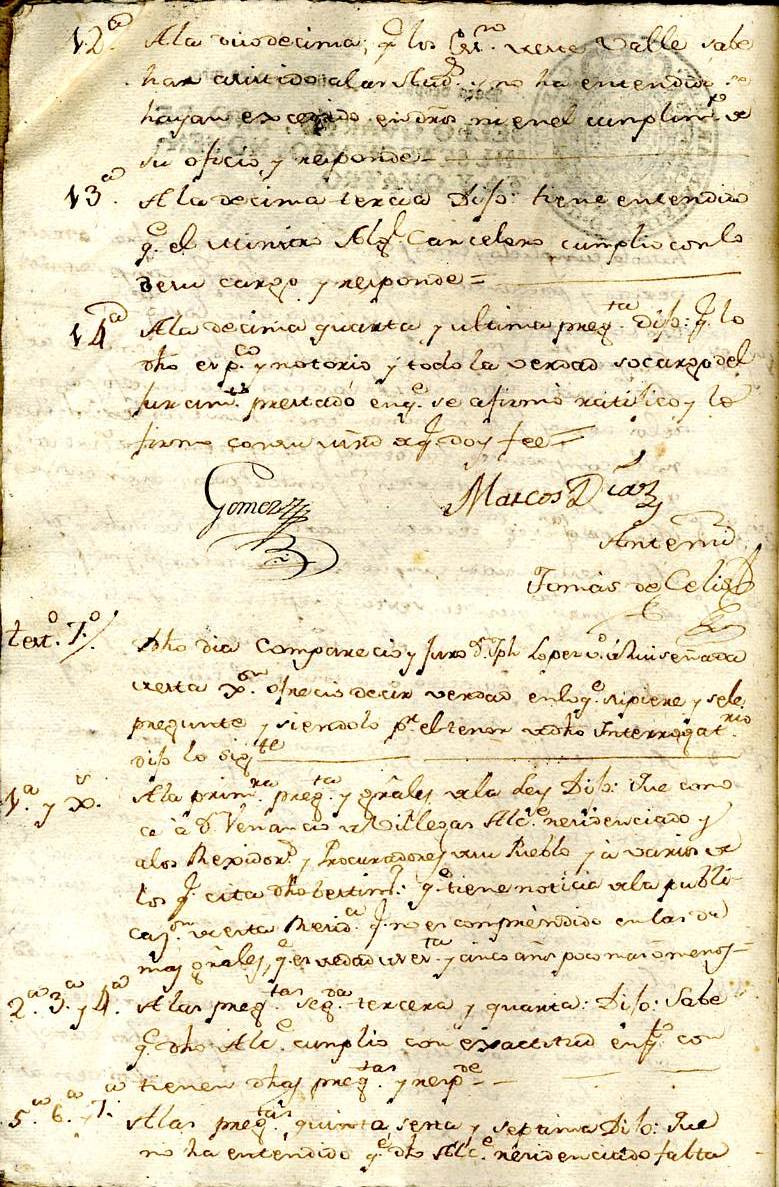 12.ª A la duodecima, q.e los Es.nos de este Valle sabe
han asistido a las Aud.s y no ha entendido
hayan excedido en dros, ni en el cumplim.to de
su oficio, y responde =
13.ª A la decima tercia Dijo: tiene entendido
q.e el Ministro Alg.l Carcelero cumplio con lo
de su cargo y responde =
14.ª A la decima quarta y ultima preg.ta Dijo: q.e lo
dho es p.co y notorio, y todo la verdad so cargo del
juram.to prestado en q.e se afirmò ratificò y lo
firmo con su mrd de q.e doy fee =
Gomez
Marcos Diaz
Antemi
Tomàs de Celis
test.o 7.o
Dho dia comparecio y juro D.n Jph Lopez v.o
de esta x.on ofrecio decir verdad en lo q.e supiere y sele
pregunte y siendolo p.r el tenor de dho Interrogat.rio
dijo lo sig.te
1.ª y
A la prim.ra preg.ta y grâles de la Ley Dijo: Que cono
ce à D.n Venancio de Villegas Alc.e residenciado y
a los Rexidor.s y Procuradores de su Pueblo y à varios de
los q.e cita dho testim.o: q.e tiene noticia de la publi-
caz.on de esta Resid.a q.e no es comprêndido en las de
mas grâles, q.e es de edad de y cinco años poco mas ò menos =
2.ª 3.ª y 4.ª A las preg.tas seg.da tercera y quarta: Dijo: Sabe
q.e dho Alc.e cumplio con exactitud en q.to con
tienen dhas preg.tas y resp.de =
5.ª 6.ª y 7.ª A las preg.tas quinta, sexta y septima Dijo: Que
no ha entendido q.e dho Alc.e residenciado falta